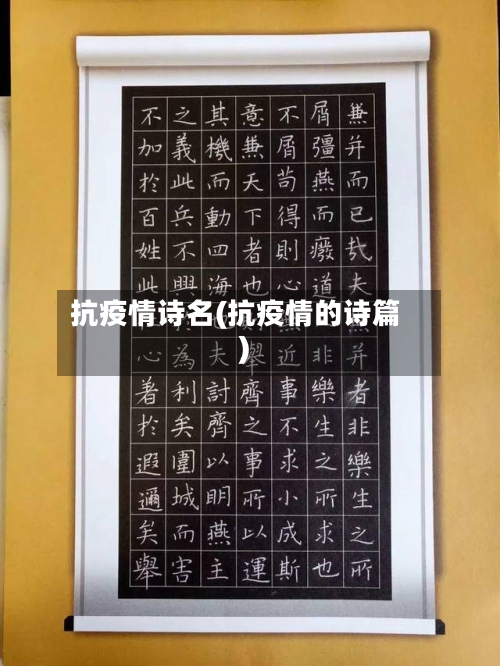 抗疫情诗名(抗疫情的诗篇
)
兼并而已哉夫并者非樂生之所
屑彊燕而癈道非樂生之所求也
不屑苟得則心近事不求小成斯
意兼天下者也舉齊之事所以運
其機而動四海夫討齊以明燕主
之義此兵不興為利矣圍城而害
不加於百姓此心著於遐邇矣舉